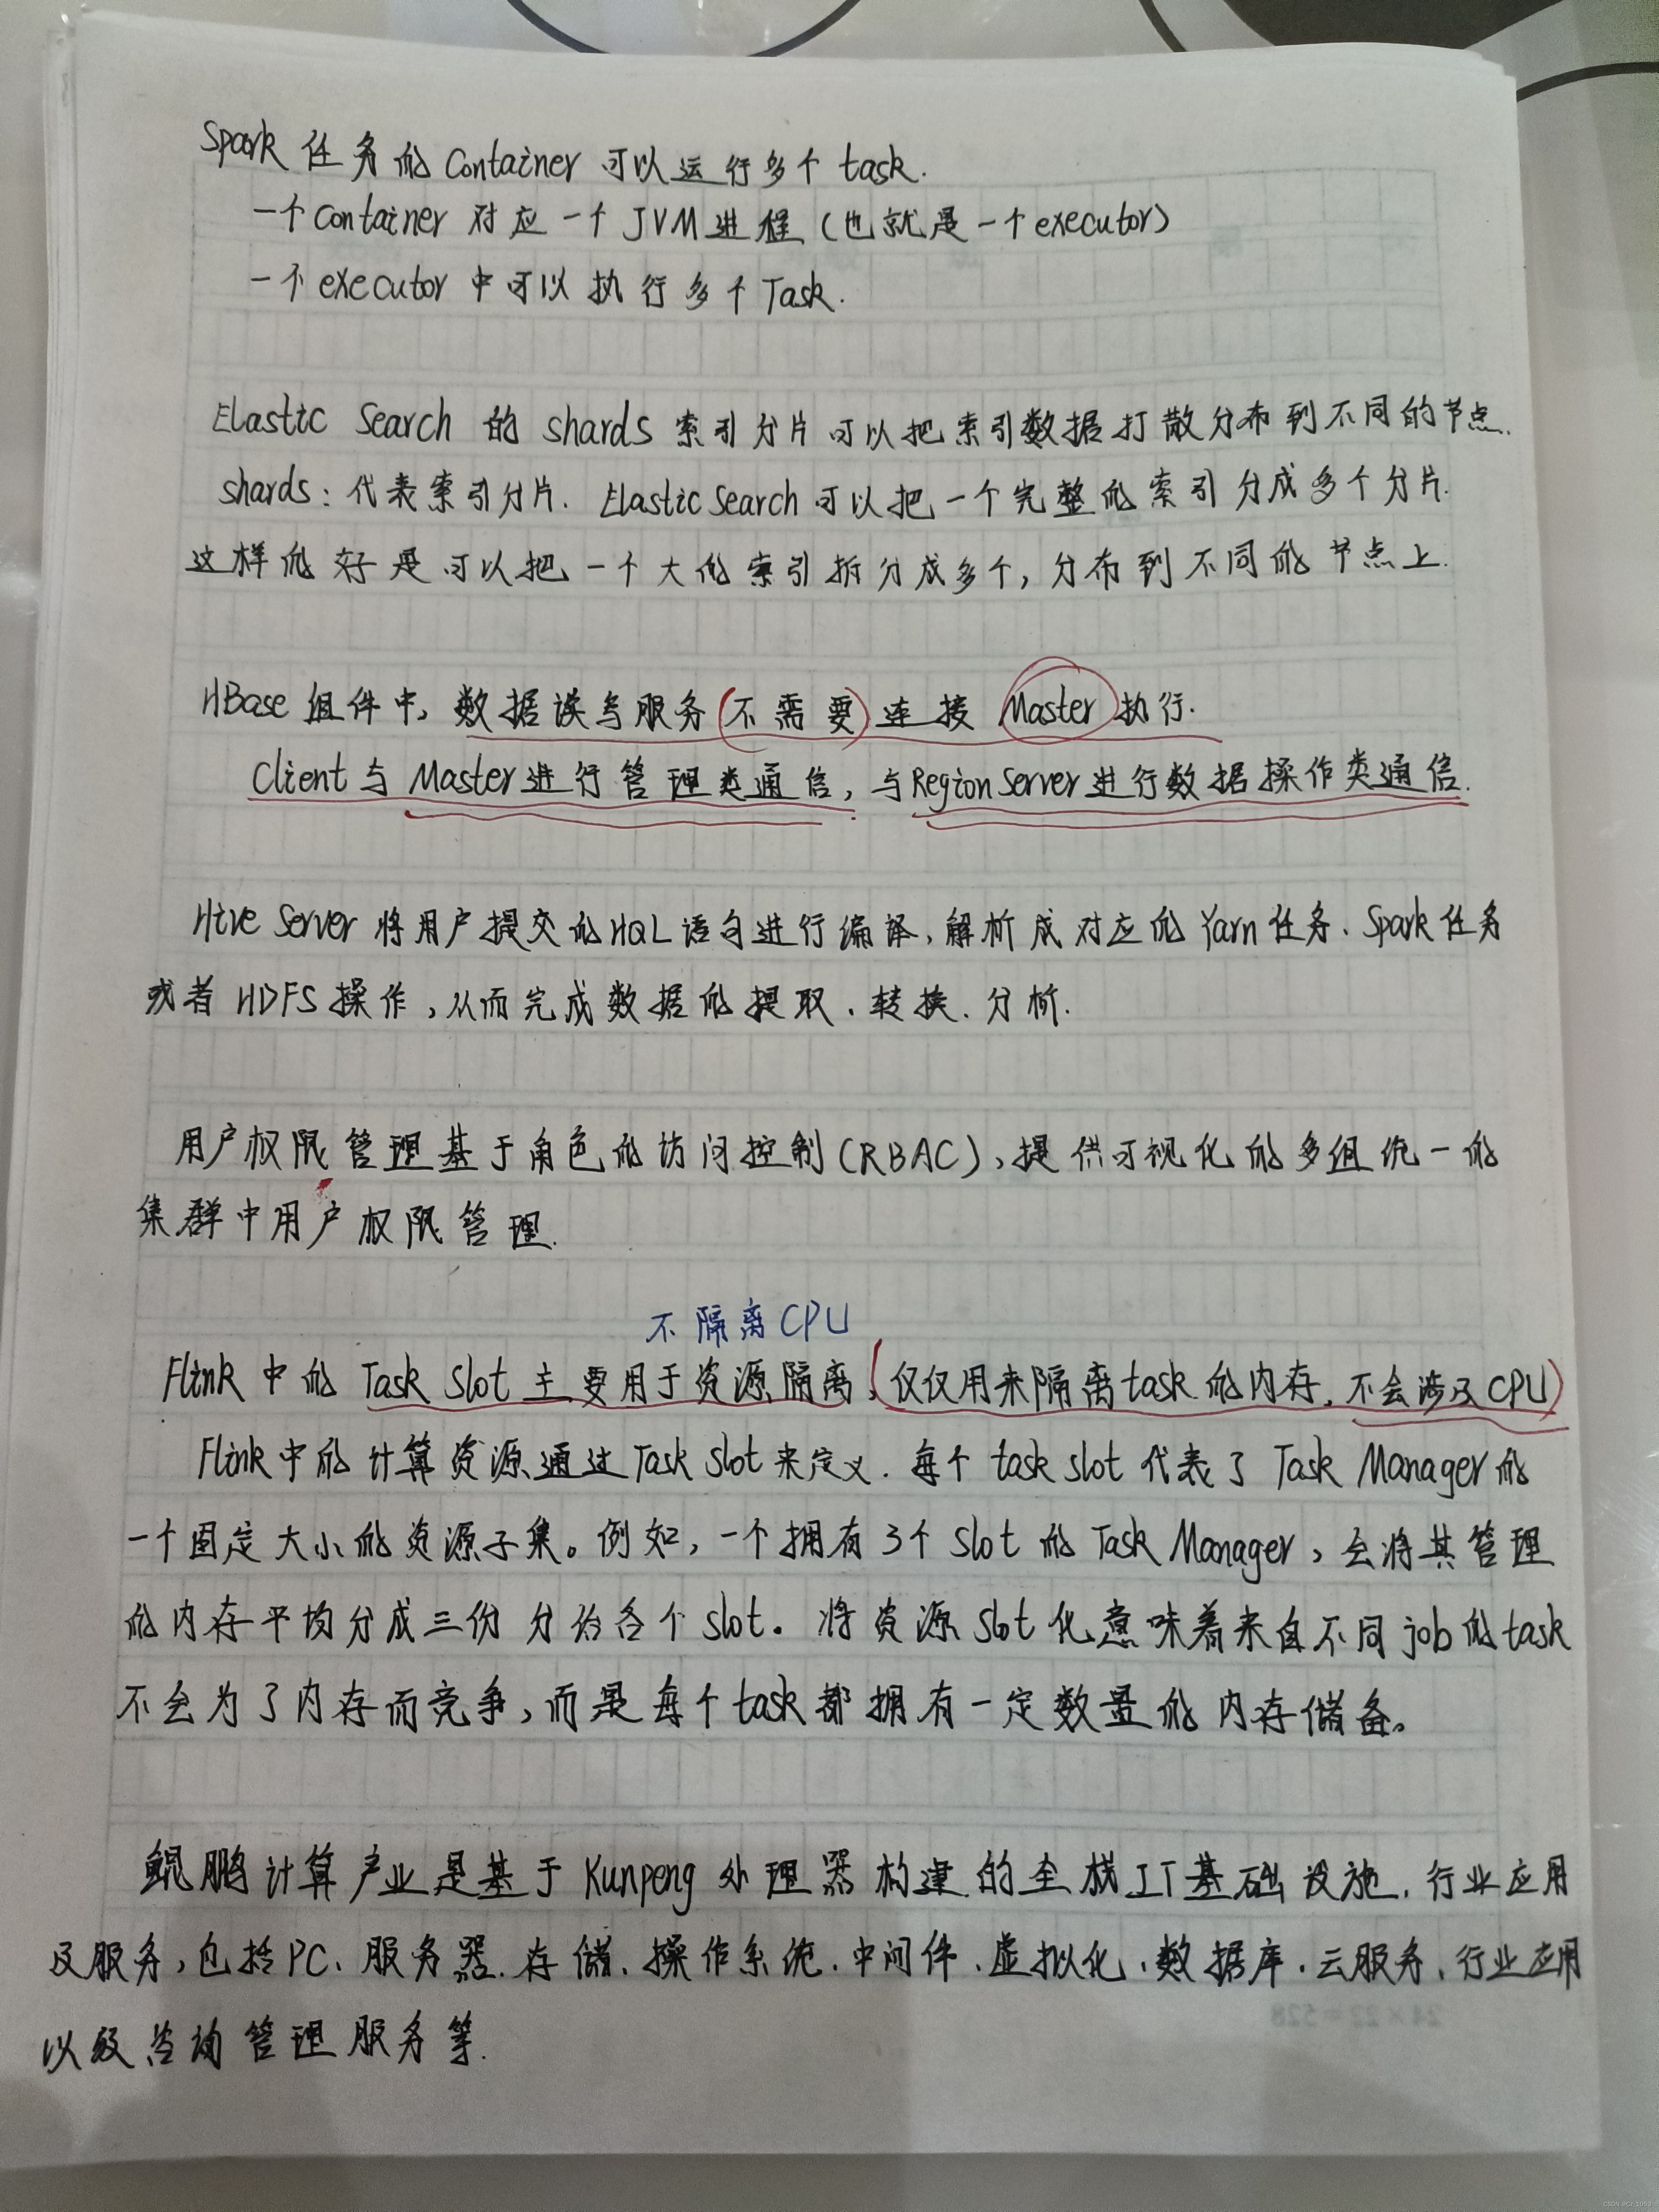 Spark 任务的 Container 可以运行多个 task.
一个 Container 对应一个 JVM 进程(也就是一个 executor)
一个 executor 中可以执行多个 Task.
Elastic Search 的 shards 索引分片可以把索引数据打散分布到不同的节点.
shards: 代表索引分片. Elastic Search 可以把一个完整的索引分成多个分片.
这样的好是可以把一个大的索引拆分成多个, 分布到不同的节点上.
HBase 组件中, 数据读写服务(不需要)连接 Master 执行.
Client 与 Master 进行管理类通信, 与 Region Server 进行数据操作类通信.
Hive Server 将用户提交的 HQL 语句进行编译, 解析成对应的 Yarn 任务、Spark 任务
或者 HDFS 操作, 从而完成数据的提取、转换、分析.
用户权限管理基于角色的访问控制(RBAC), 提供可视化的多组统一的
集群中用户权限管理.
不隔离 CPU
Flink 中的 Task Slot 主要用于资源隔离(仅仅用来隔离 task 的内存, 不会涉及 CPU)
Flink 中的计算资源通过 Task Slot 来定义. 每个 task slot 代表了 Task Manager 的
一个固定大小的资源子集。例如, 一个拥有 3 个 slot 的 Task Manager, 会将其管理
的内存平均分成三份分给各个 slot。将资源 slot 化意味着来自不同 job 的 task
不会为了内存而竞争, 而是每个 task 都拥有一定数量的内存储备。
鲲鹏计算产业是基于 Kunpeng 处理器构建的全栈 IT 基础设施, 行业应用
及服务, 包括 PC、服务器、存储、操作系统、中间件、虚拟化、数据库、云服务、行业应用
以及咨询管理服务等.
24×22=528